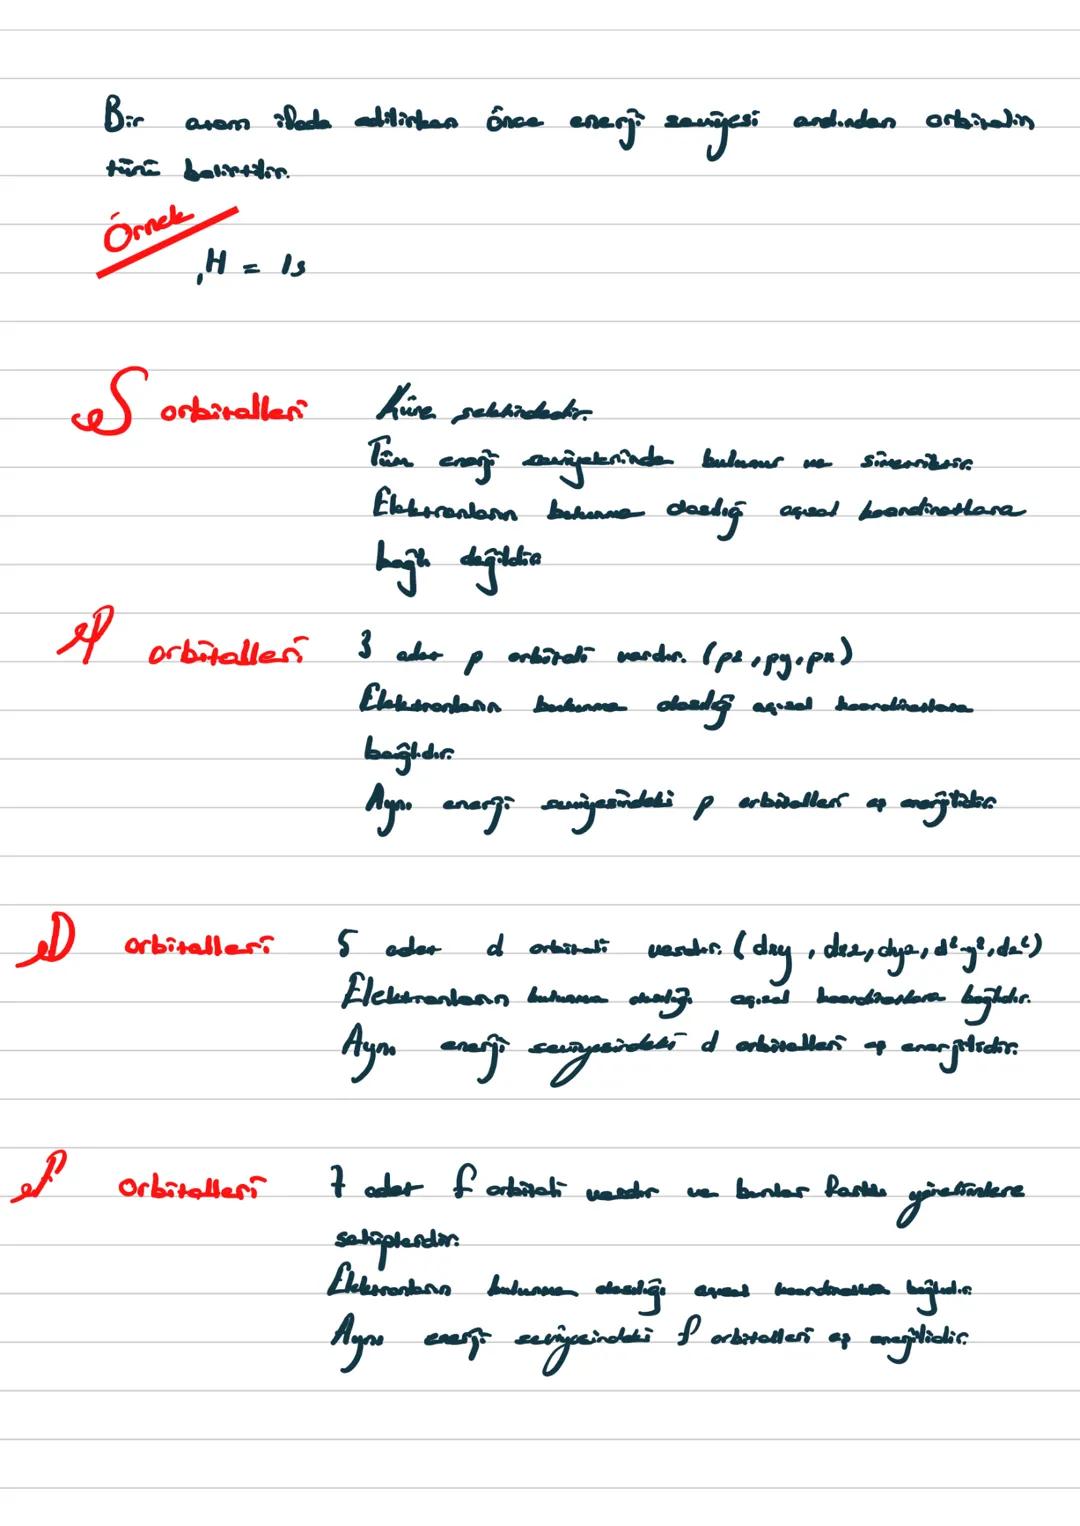 Bir atom ifade edilirken önce enerji seviyesi ardından orbitalin
türü belirtilir.
Örnek
₁H = 1s
S orbitalleri Küre şeklindedir.
Tüm enerji seviyelerinde bulunur ve simetriktir.
Elektronların bulunma olasılığı açısal koordinatlara
bağlı değildir
P orbitalleri 3 adet p orbitali vardır. (pz, py, px)
Elektronların bulunma olasılığı açısal koordinatlara
bağlıdır.
Aynı enerji seviyesindeki p orbitalleri eş enerjilidir.
D orbitalleri 5 adet d orbitali vardır. (dxy, dxz, dyz, d²-y², dz²)
Elektronların bulunma olasılığı açısal koordinatlara bağlıdır.
Aynı enerji seviyesindeki d orbitalleri eş enerjilidir.
F orbitalleri 7 adet f orbitali vardır ve bunlar farklı yönelimlere
sahiplerdir.
Elektronların bulunma olasılığı açısal koordinatlara bağlıdır.
Aynı enerji seviyesindeki f orbitalleri eş enerjilidir.